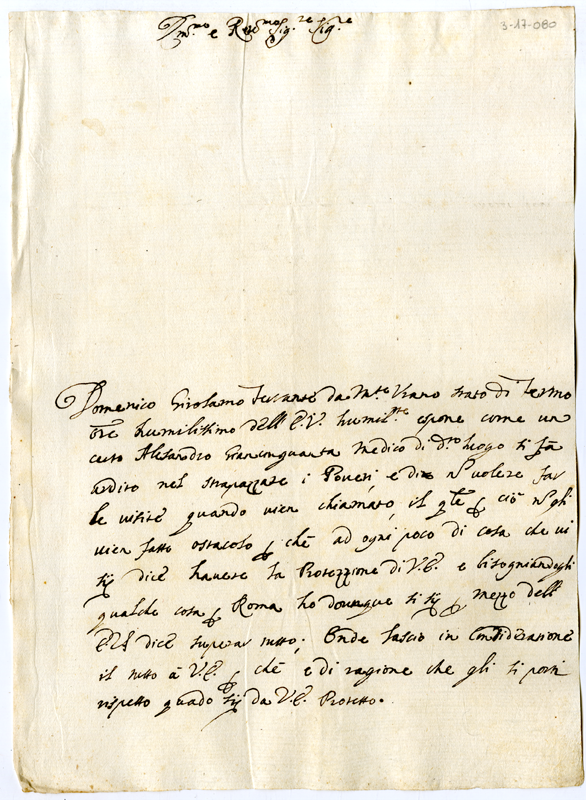 Ill.mo e Rev.mo Sig.re Sig.re
3-17-080
Domenico Girolamo da M.te Urano stato di Fermo
Ore humilissimo dell'E.V. humil.te espone come un
certo Alesandro Giancinquanta Medico di d.to luogo si fa
ardito nel strapazzare i Poveri, e dice n volere far
le visite quando vien chiamato, il q̃le p ciò n gli
vien fatto ostacolo p chè ad ogni poco di cosa che vi
sij dice havere la Protezzione di V.E. e bisogniandogli
qualche cosa p Roma ho dounque si sij p mezzo dell
E.V. dice superar tutto; Onde lascio in Considerazione
il tutto à V.E. p chè e di ragione che gli si porti
rispetto quado sij da V.E. Protetto.